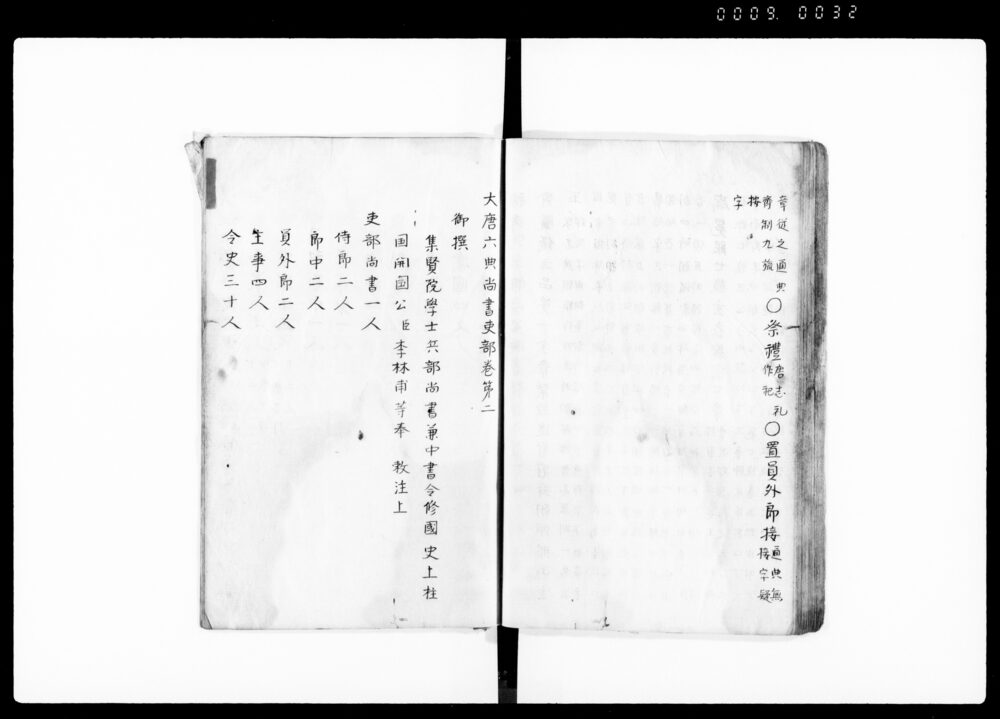 0009. 0032
章従之通典
斉制九旒
接
字
〇祭禮
唐志礼
作祀
〇置員外郎接
通典無
接字疑
大唐六典尚書吏部巻第二
御撰
集賢院學士兵部尚書兼中書令修國史上柱
国開國公臣李林甫等奉 敕注上
吏部尚書一人
侍郎二人
郎中二人
員外郎二人
主事四人
令史三十人